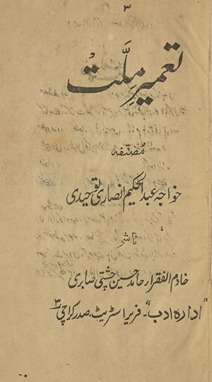 ٣
تعمیرِ ملّت
مُصنّفہ
خواجہ عبدالحکیم انصاری توحیدی
ناشر
خادم الفقراء حامد حسین چشتی صابری
"ادارہ ادب"۔ فریر اسٹریٹ۔ صدر کراچی ٣